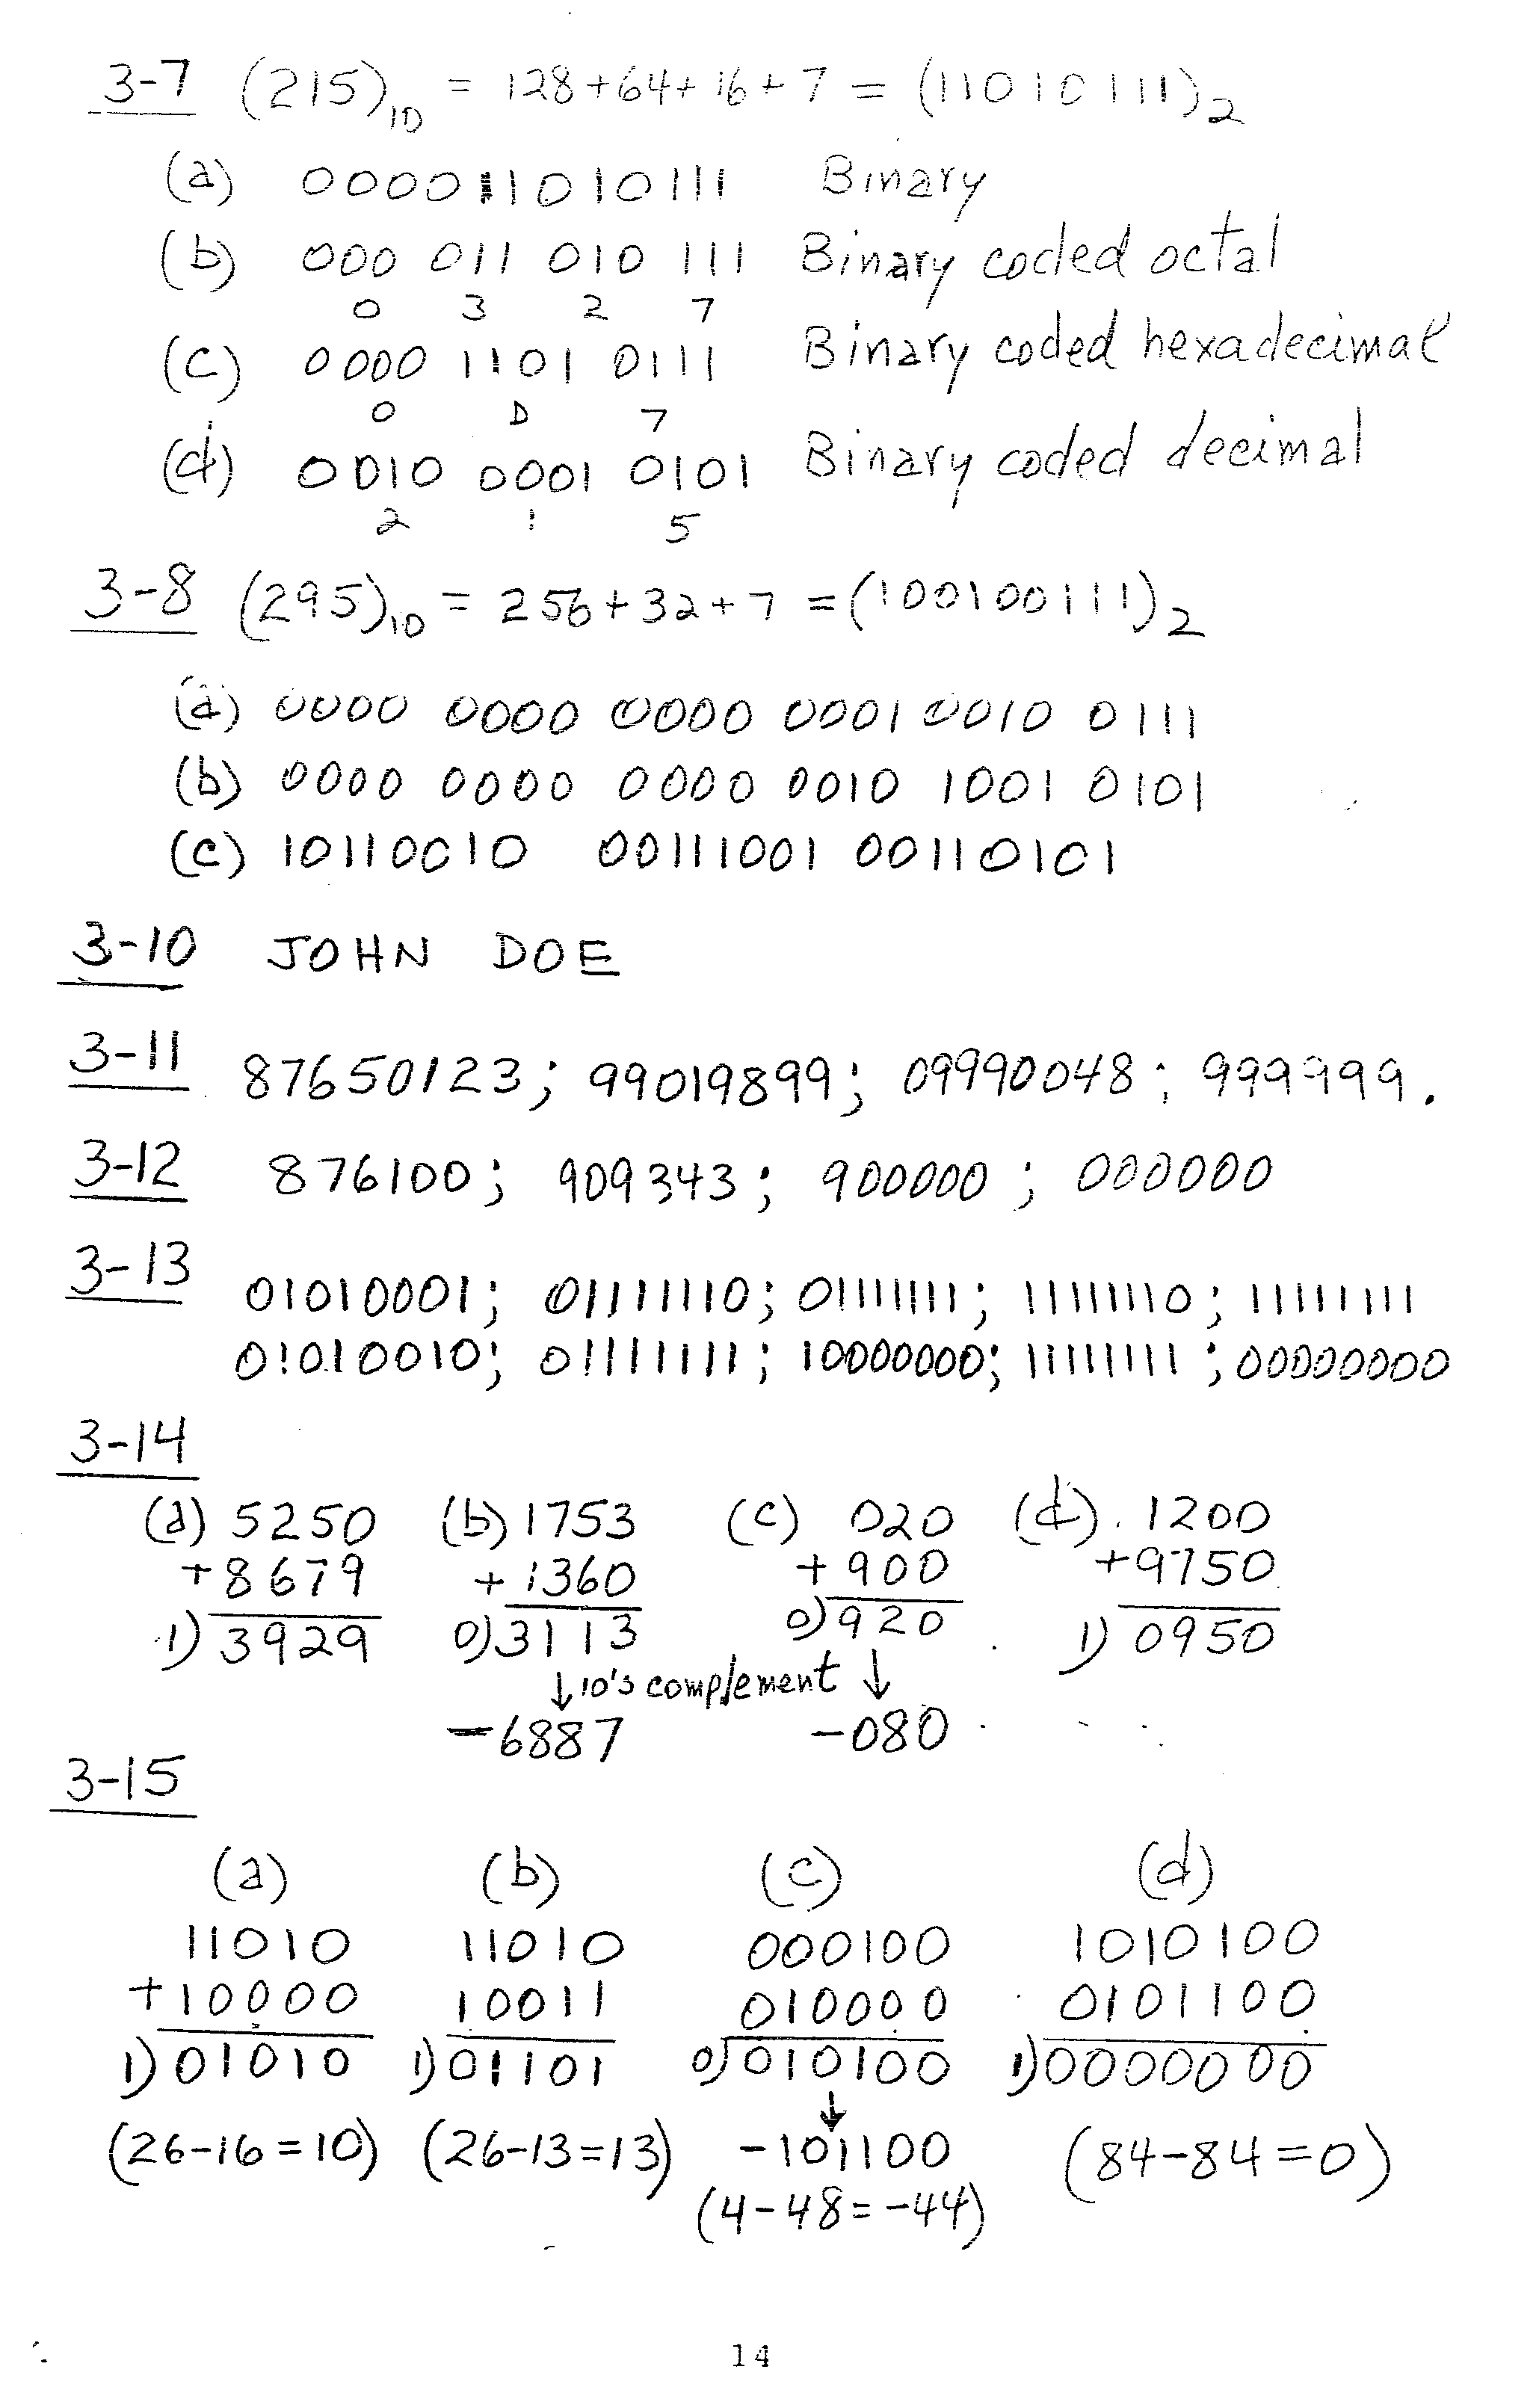 3-7 (215)10 = 128+64+16+7 = (11010111)2
(a) 000011010111 Binary
(b) 000 011 010 111 Binary coded octal
0 3 2 7
(c) 0000 1101 0111 Binary coded hexadecimal
0 D 7
(d) 0010 0001 0101 Binary coded decimal
2 1 5
3-8 (295)10 = 256+32+7 = (100100111)2
(a) 0000 0000 0000 0001 0010 0111
(b) 0000 0000 0000 0010 1001 0101
(c) 10110010 00111001 00110101
3-10 JOHN DOE
3-11 87650123; 99019899; 09990048; 999999.
3-12 876100; 909343; 900000; 000000
3-13 01010001; 01111110; 01111111; 11111110; 11111111
01010010; 01111111; 10000000; 11111111; 00000000
3-14
(a) 5250 (b) 1753 (c) 020 (d) 1200
+8679 +1360 +900 +9750
1)3929 0)3113 0)920 1)0950
↓10's complement ↓
-6887 -080
3-15
(a) (b) (c) (d)
11010 11010 000100 1010100
+10000 10011 010000 0101100
1)01010 1)01101 0)010100 1)0000000
↓
(26-16=10) (26-13=13) -101100 (84-84=0)
(4-48=-44)
14